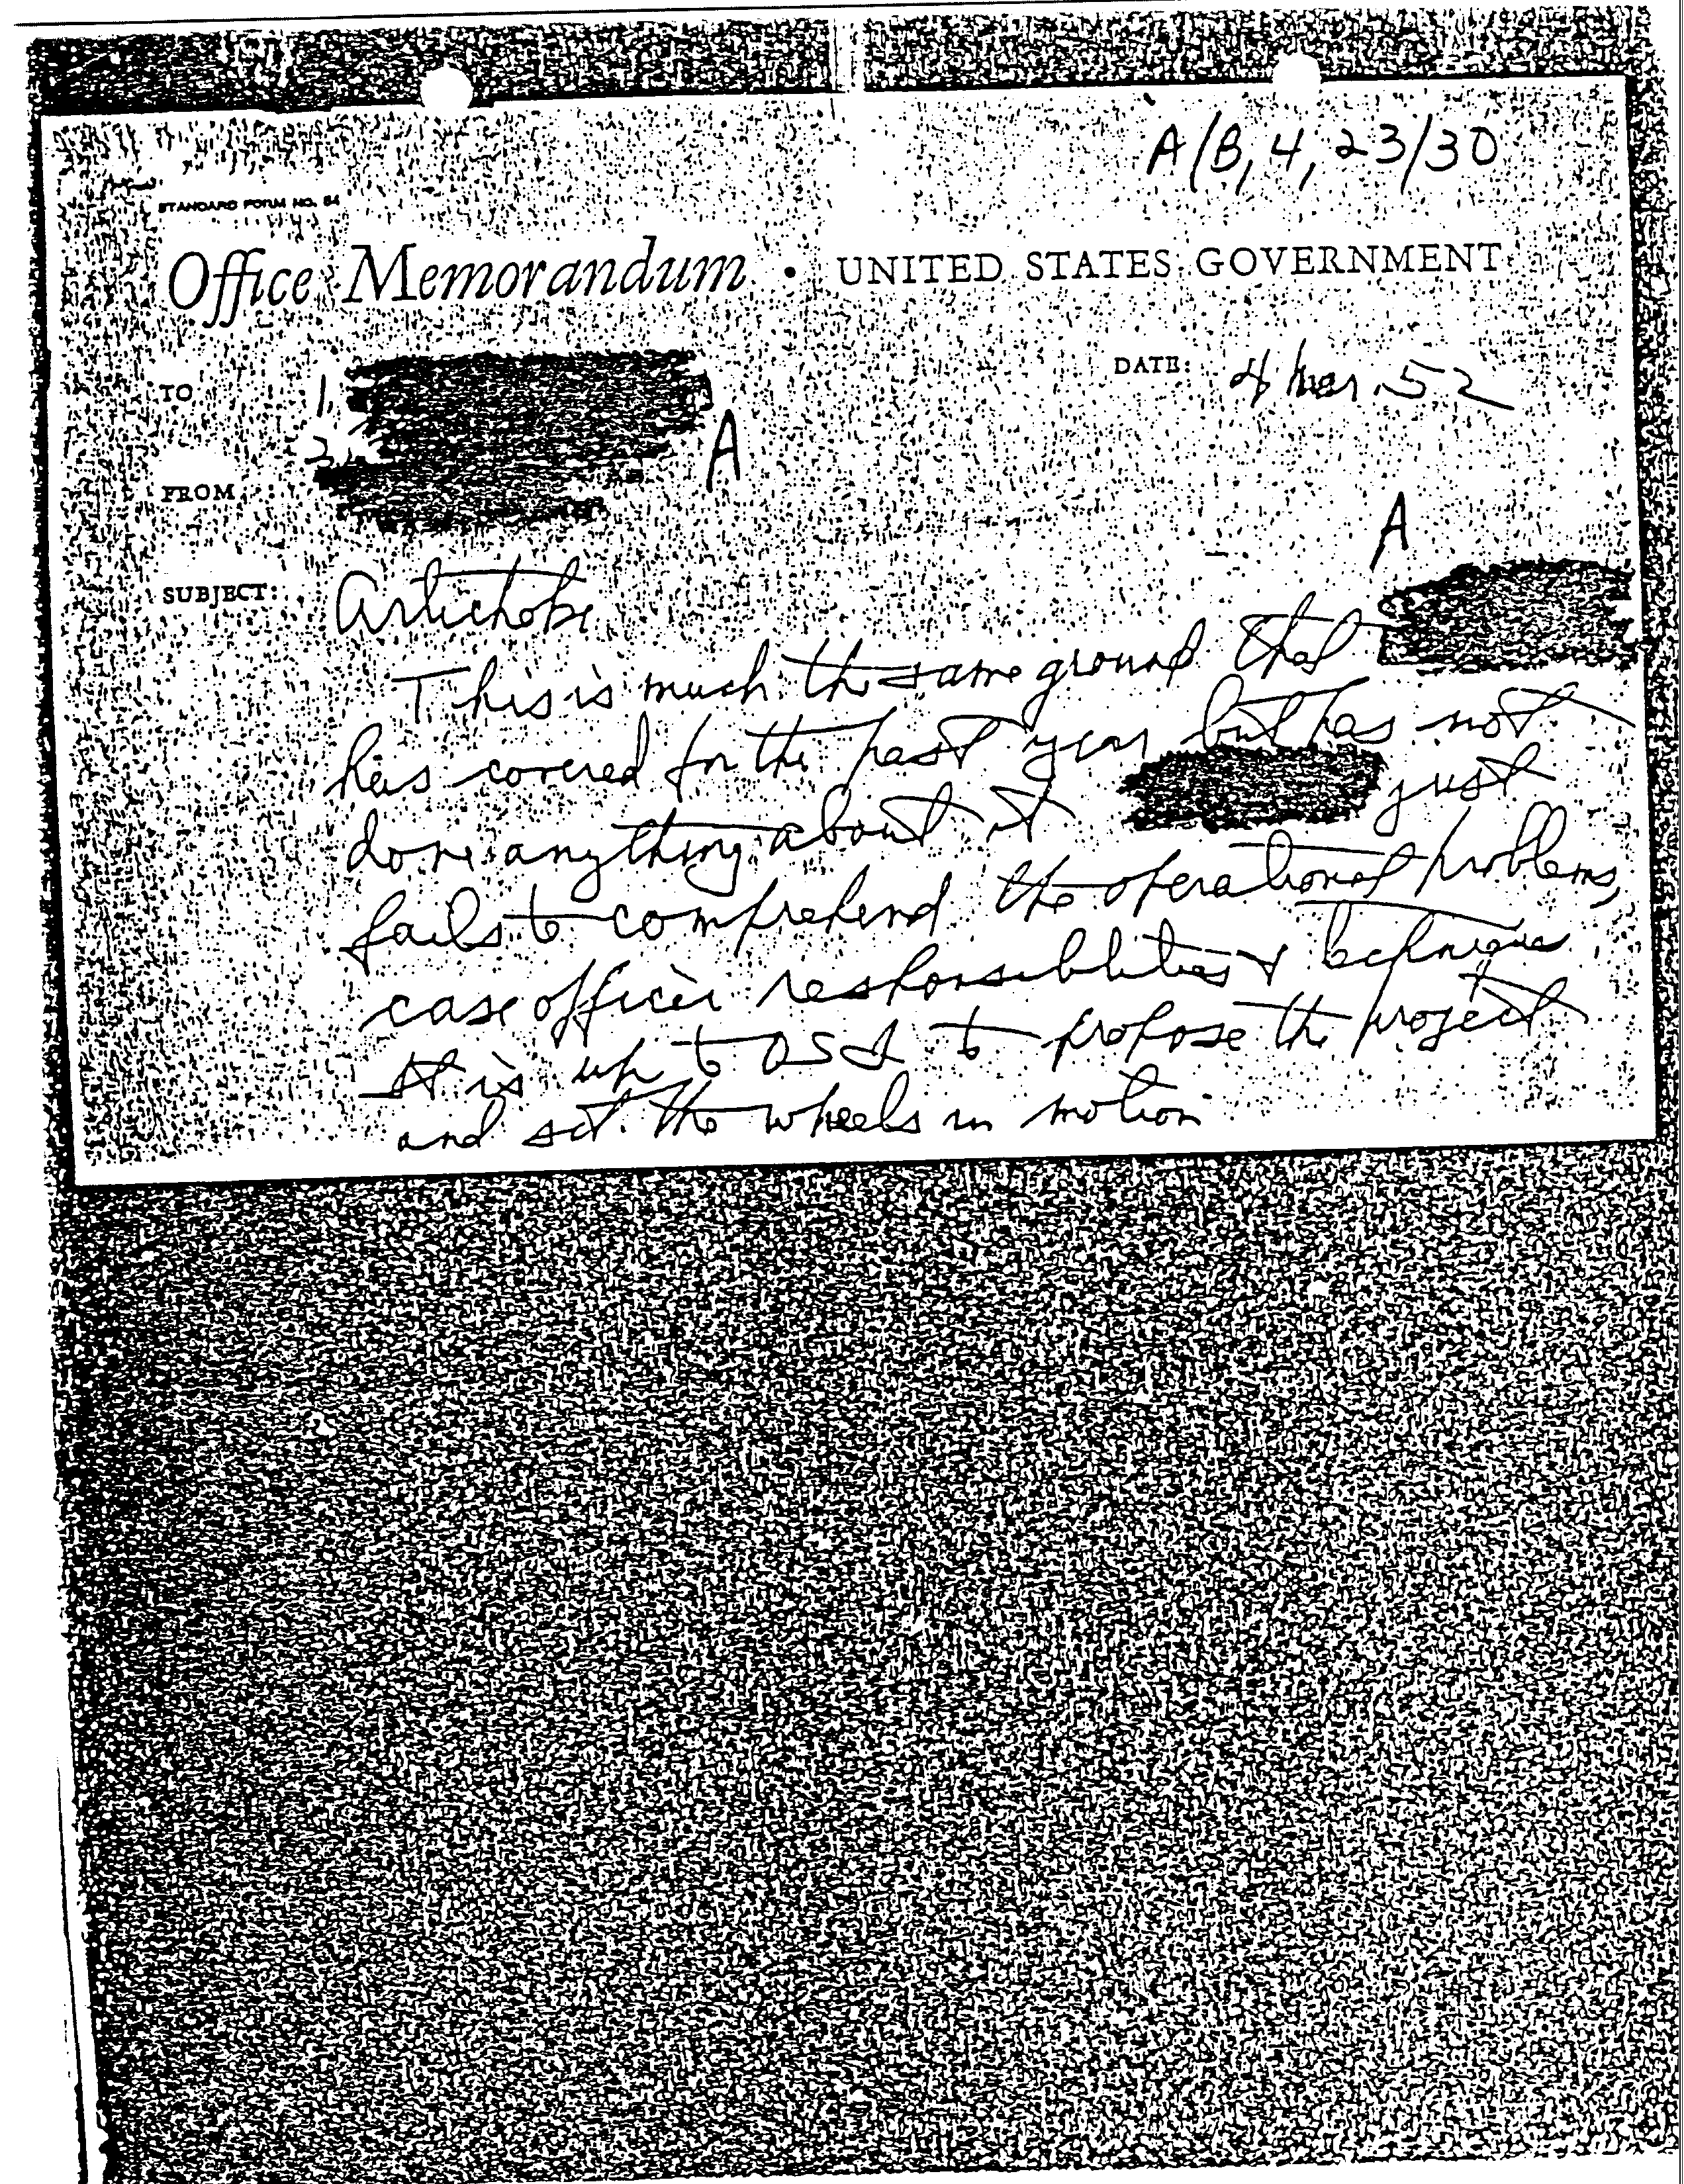 A/B, 4, 23/30
STANDARD FORM NO. 64
Office Memorandum • UNITED STATES GOVERNMENT
TO 1. DATE: 4 Mar 52
2. A
FROM :
A
SUBJECT: Artichoke
This is much the same ground that
has covered for the past year but has not
done anything about it just
fails to comprehend the operational problems,
case officer responsiblities & techniques
It is up to OSI to propose the project
and set the wheels in motion